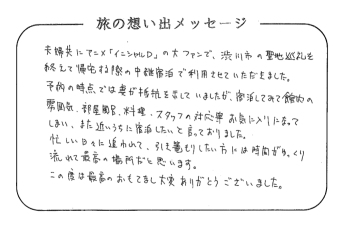 旅の想い出メッセージ
夫婦共にアニメ「イニシャルD」の大ファンで、渋川市の聖地巡礼を
終えて帰宅する際の中継宿泊で利用させていただきました。
予約の時点では妻が抵抗を示していましたが、宿泊してみて館内の
雰囲気、部屋風呂、料理、スタッフの対応等お気に入りになって
しまい、また近いうちに宿泊したいと言っておりました。
忙しい日々に追われて、引き篭もりしたい方には時間がゆっくり
流れて最高の場所だと思います。
この度は最高のおもてなし大変ありがとうございました。